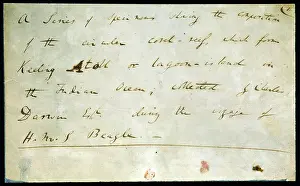 A Series of specimens showing the
of the circular coral-reef, which form
Keeling Atoll or lagoon-island in
the Indian Ocean; collected by Charles
Darwin Esqr during the voyage of
H.M.S Beagle. —